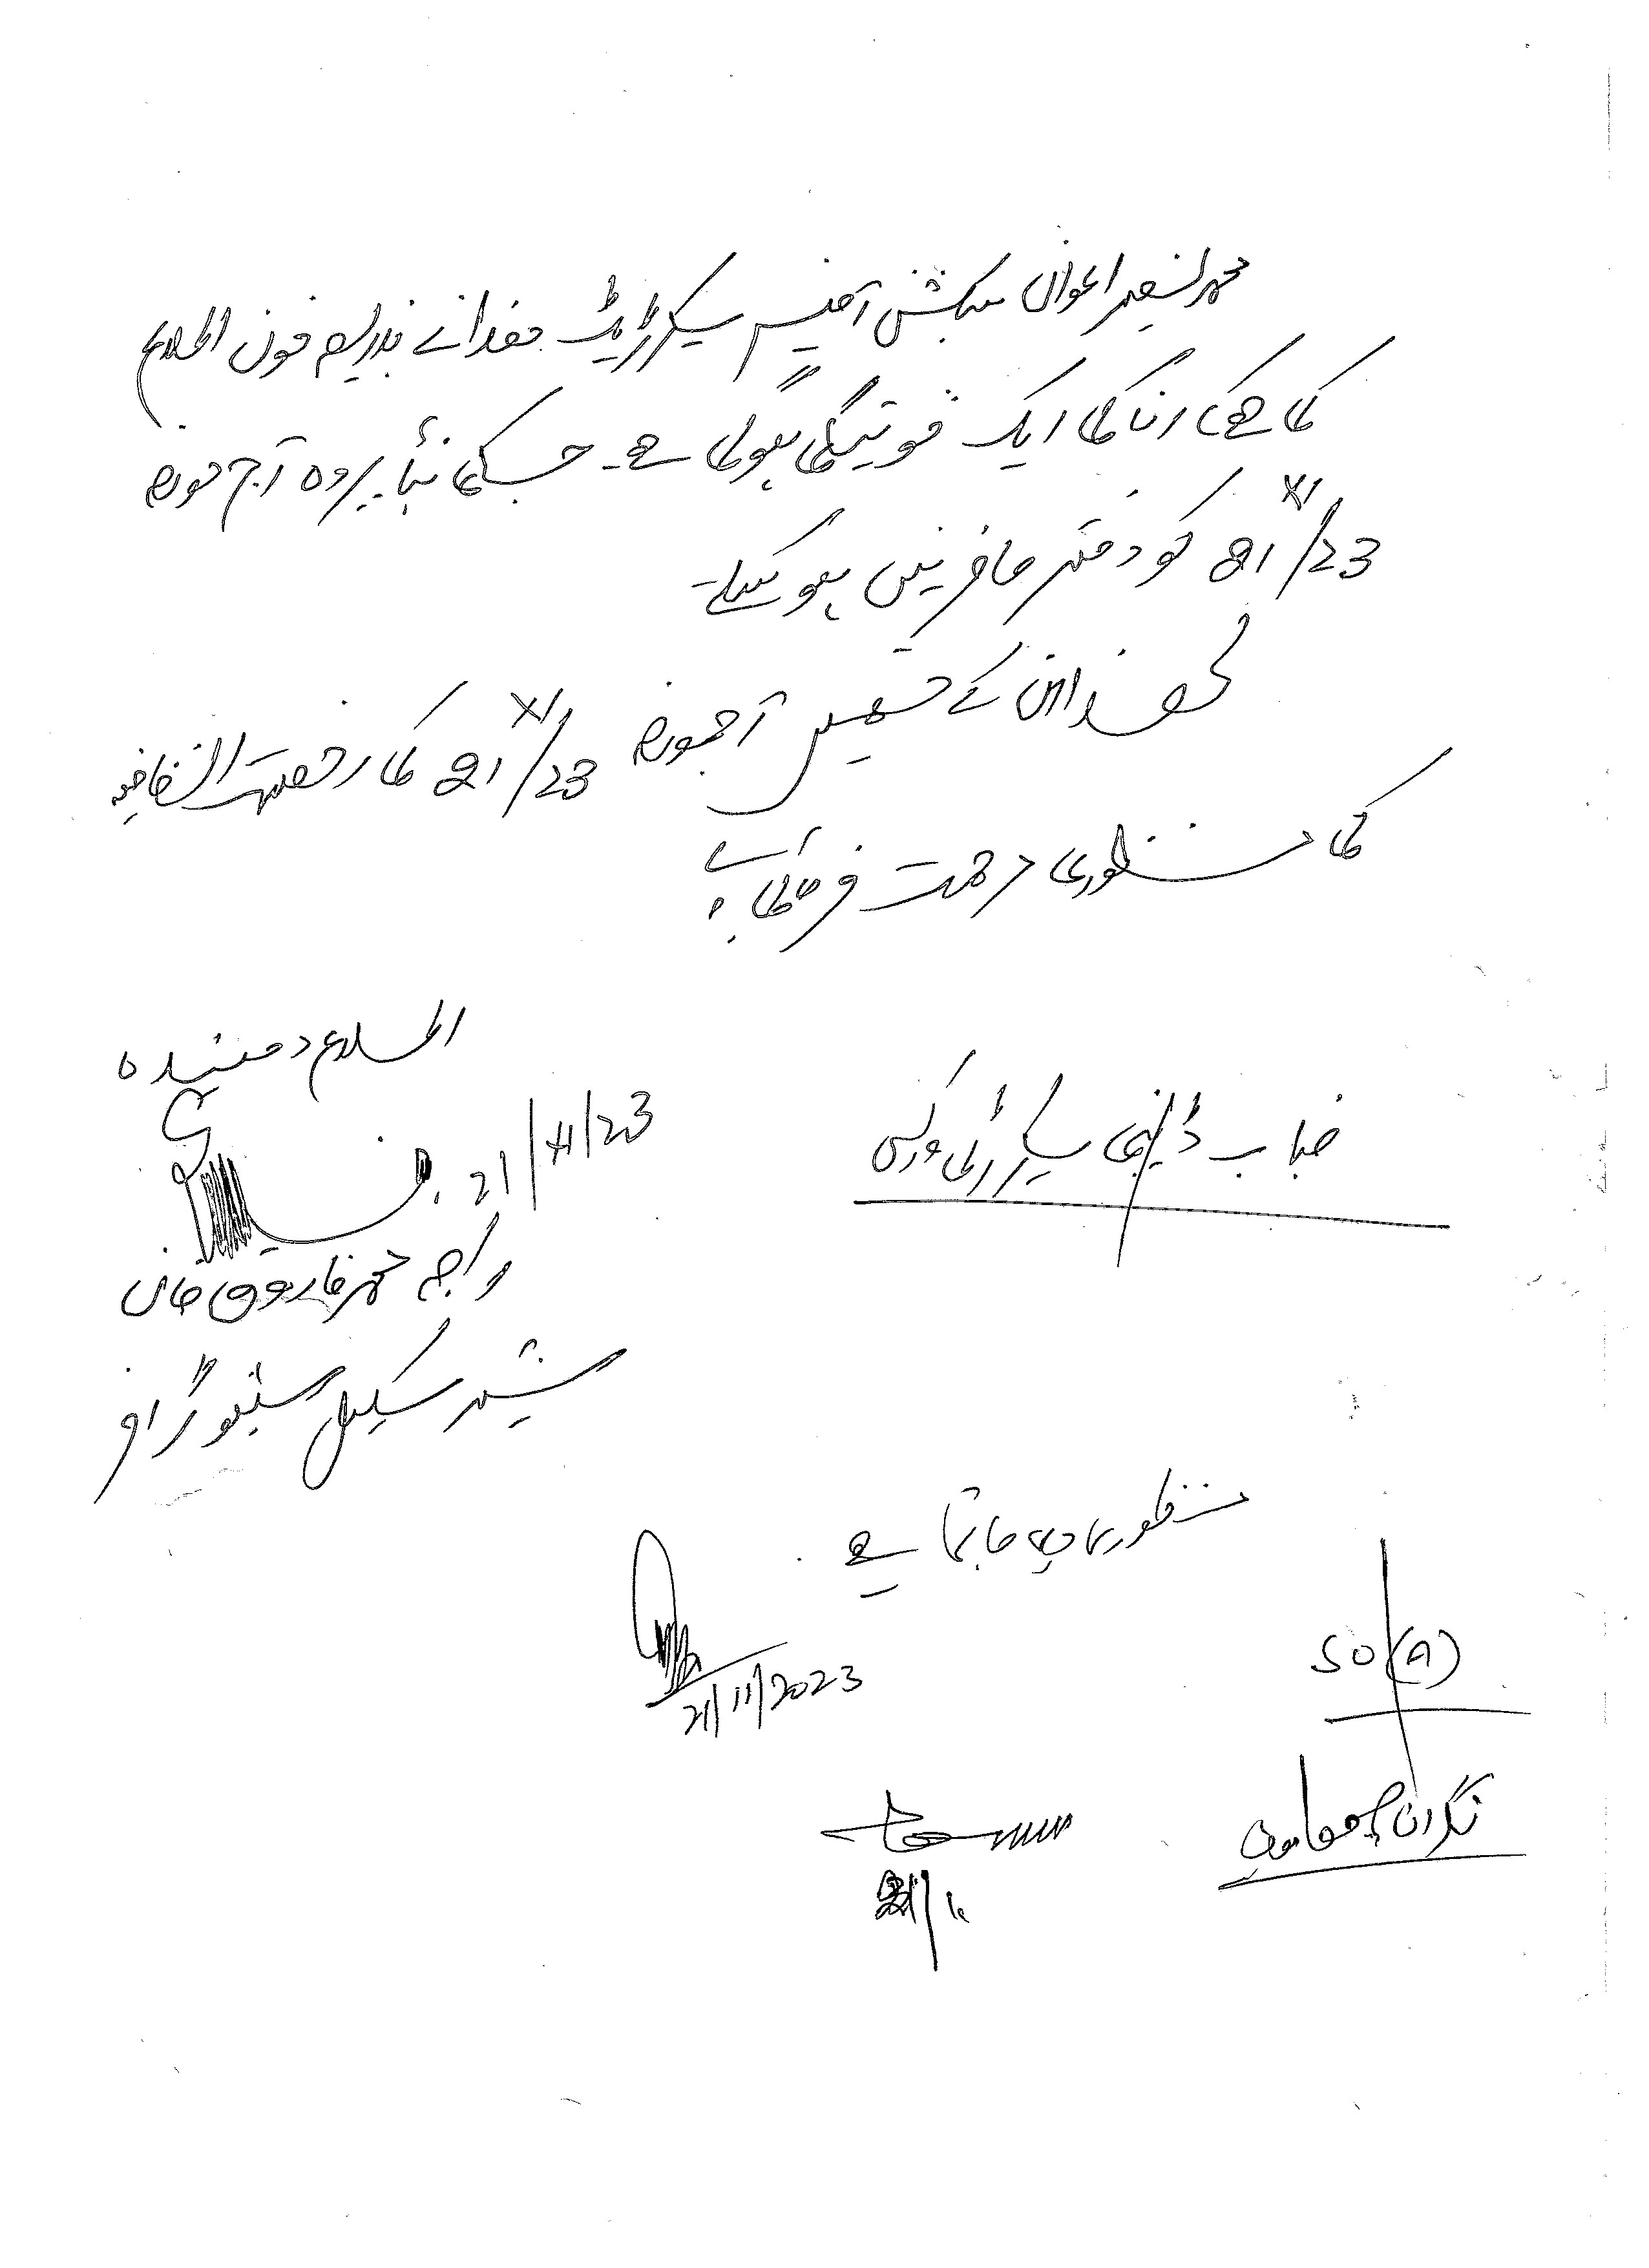 محمد نصیر اعوان سیکشن آفیسر سیکرٹریٹ ھذا نے بذریعہ فون اطلاع
کی ہے کہ انکی ایک فوتیدگی ہوگئی ہے۔ جسکی بناء پر وہ آج مورخہ
21/XI/23 کو دفتر حاضر نہیں ہو سکیں گے۔
لہذا ان کے حق میں آجمورخہ 21/XI/23 کی رخصت اتفاقیہ
کی منظوری مرحمت فرمائی جائے
اطلاع دہندہ
21/XI/23
راجہ محمد فاروق خان
سینئر سکیل سٹینو گرافر
جناب ڈپٹی سیکرٹری ورکس
منظوری دی جاتی ہے
21/11/2023
SO(A)
نگران